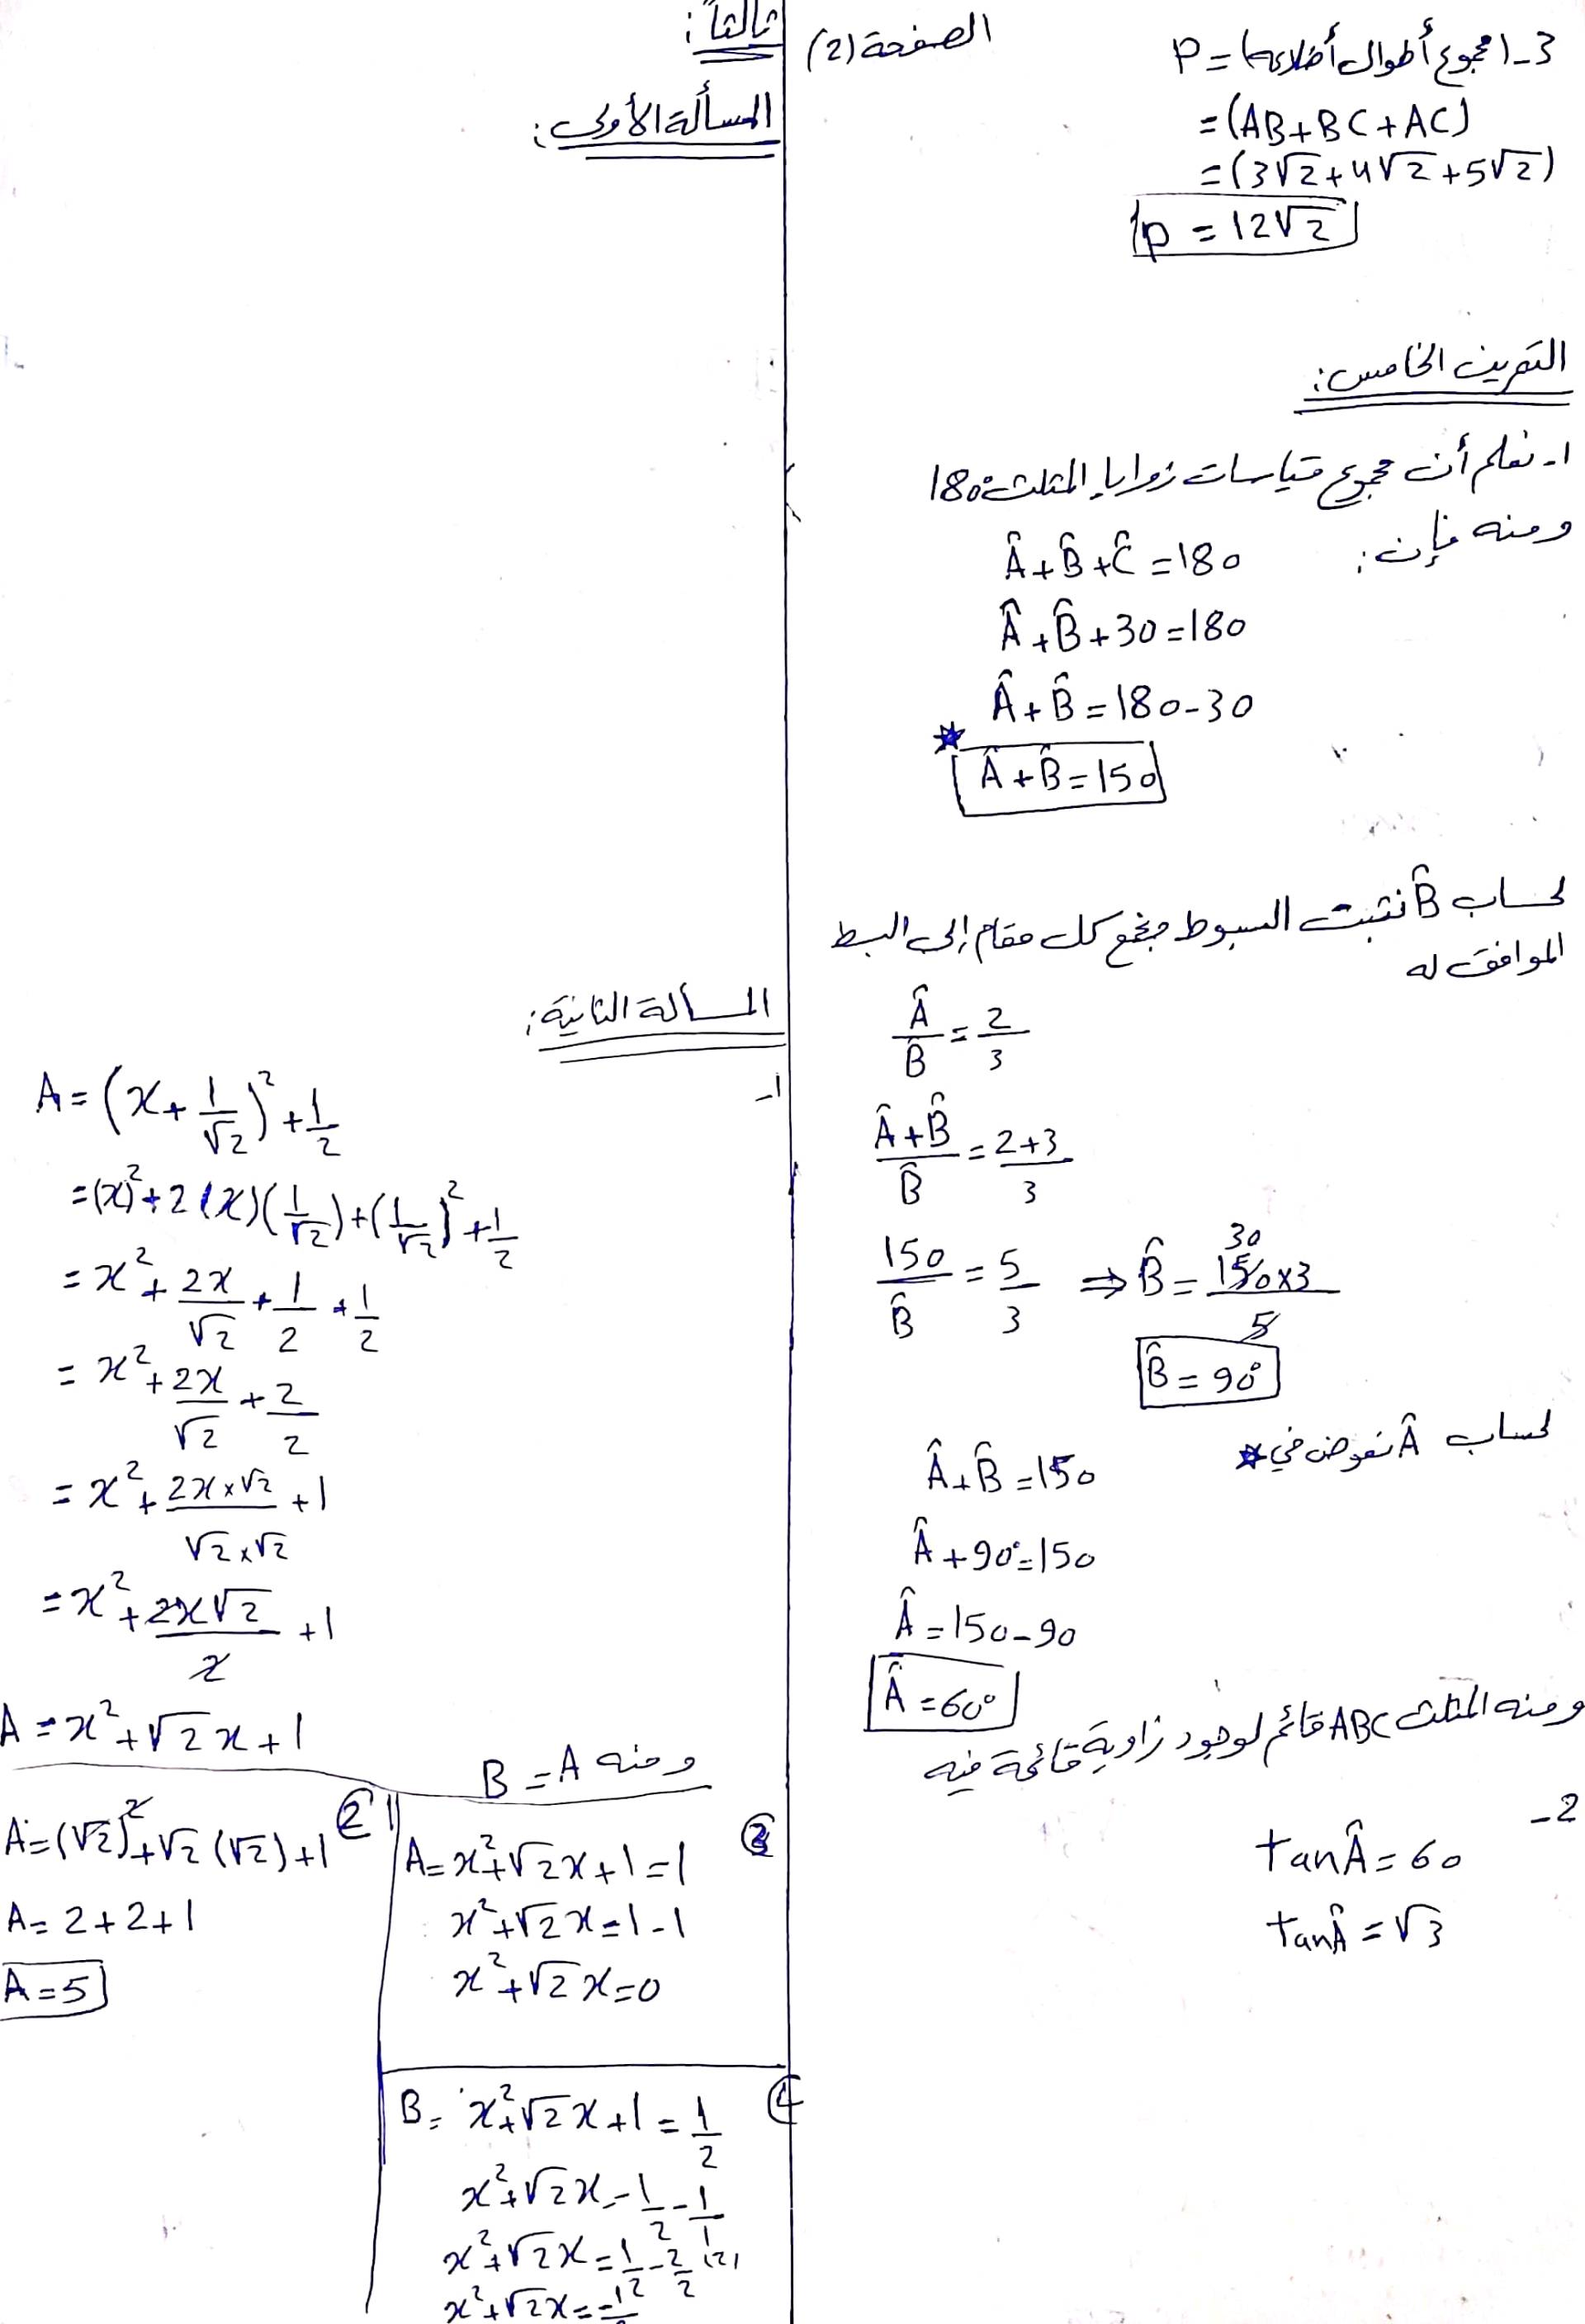 الصفحة (2)
3-(مجموع أطوال أضلاعه) = P
=(AB+BC+AC)
=(3√2+4√2+5√2)
p = 12√2
التمرين الخامس:
1- نعلم أن مجموع قياسات زوايا المثلث 180°
ومنه فإن:
Â+B̂+Ĉ=180
Â+B̂+30=180
Â+B̂=180-30
★ Â+B̂=150
لحساب B̂ نثبت البسوط ونجمع كل مقام إلى البسط
الموافق له
Â/B̂ = 2/3
(Â+B̂)/B̂ = (2+3)/3
150/B̂ = 5/3 ⇒ B̂ = (150×3)/5 30
B̂=90°
لحساب Â نعوض في ★
Â+B̂=150
Â+90°=150
Â=150-90
Â=60°
ومنه المثلث ABC قائم لوجود زاوية قائمة فيه
2-
tanÂ=60
tanÂ=√3
ثالثاً:
المسألة الأولى:
المسألة الثانية:
1-
A=(x+1/√2)²+1/2
=(x)²+2(x)(1/√2)+(1/√2)²+1/2
=x²+2x/√2+1/2+1/2
=x²+2x/√2+2/2
=x²+(2x×√2)/(√2×√2)+1
=x²+2x√2/2+1
A=x²+√2x+1
ومنه B=A
②
A=(√2)²+√2(√2)+1
A=2+2+1
A=5
③
A=x²+√2x+1=1
x²+√2x=1-1
x²+√2x=0
④
B=x²+√2x+1=1/2
x²+√2x=1/2-1/1
x²+√2x=1/2-2/2 (2)
x²+√2x=-1/2